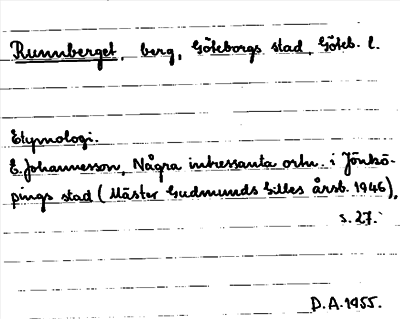 Runnberget, berg, Göteborgs stad, Göteb. l.
Etymologi.
E. Johannesson, Några intressanta ortn. i Jönkö-
pings stad (Mäster Gudmunds Gilles årsb. 1946),
s. 27.
D.A. 1955.